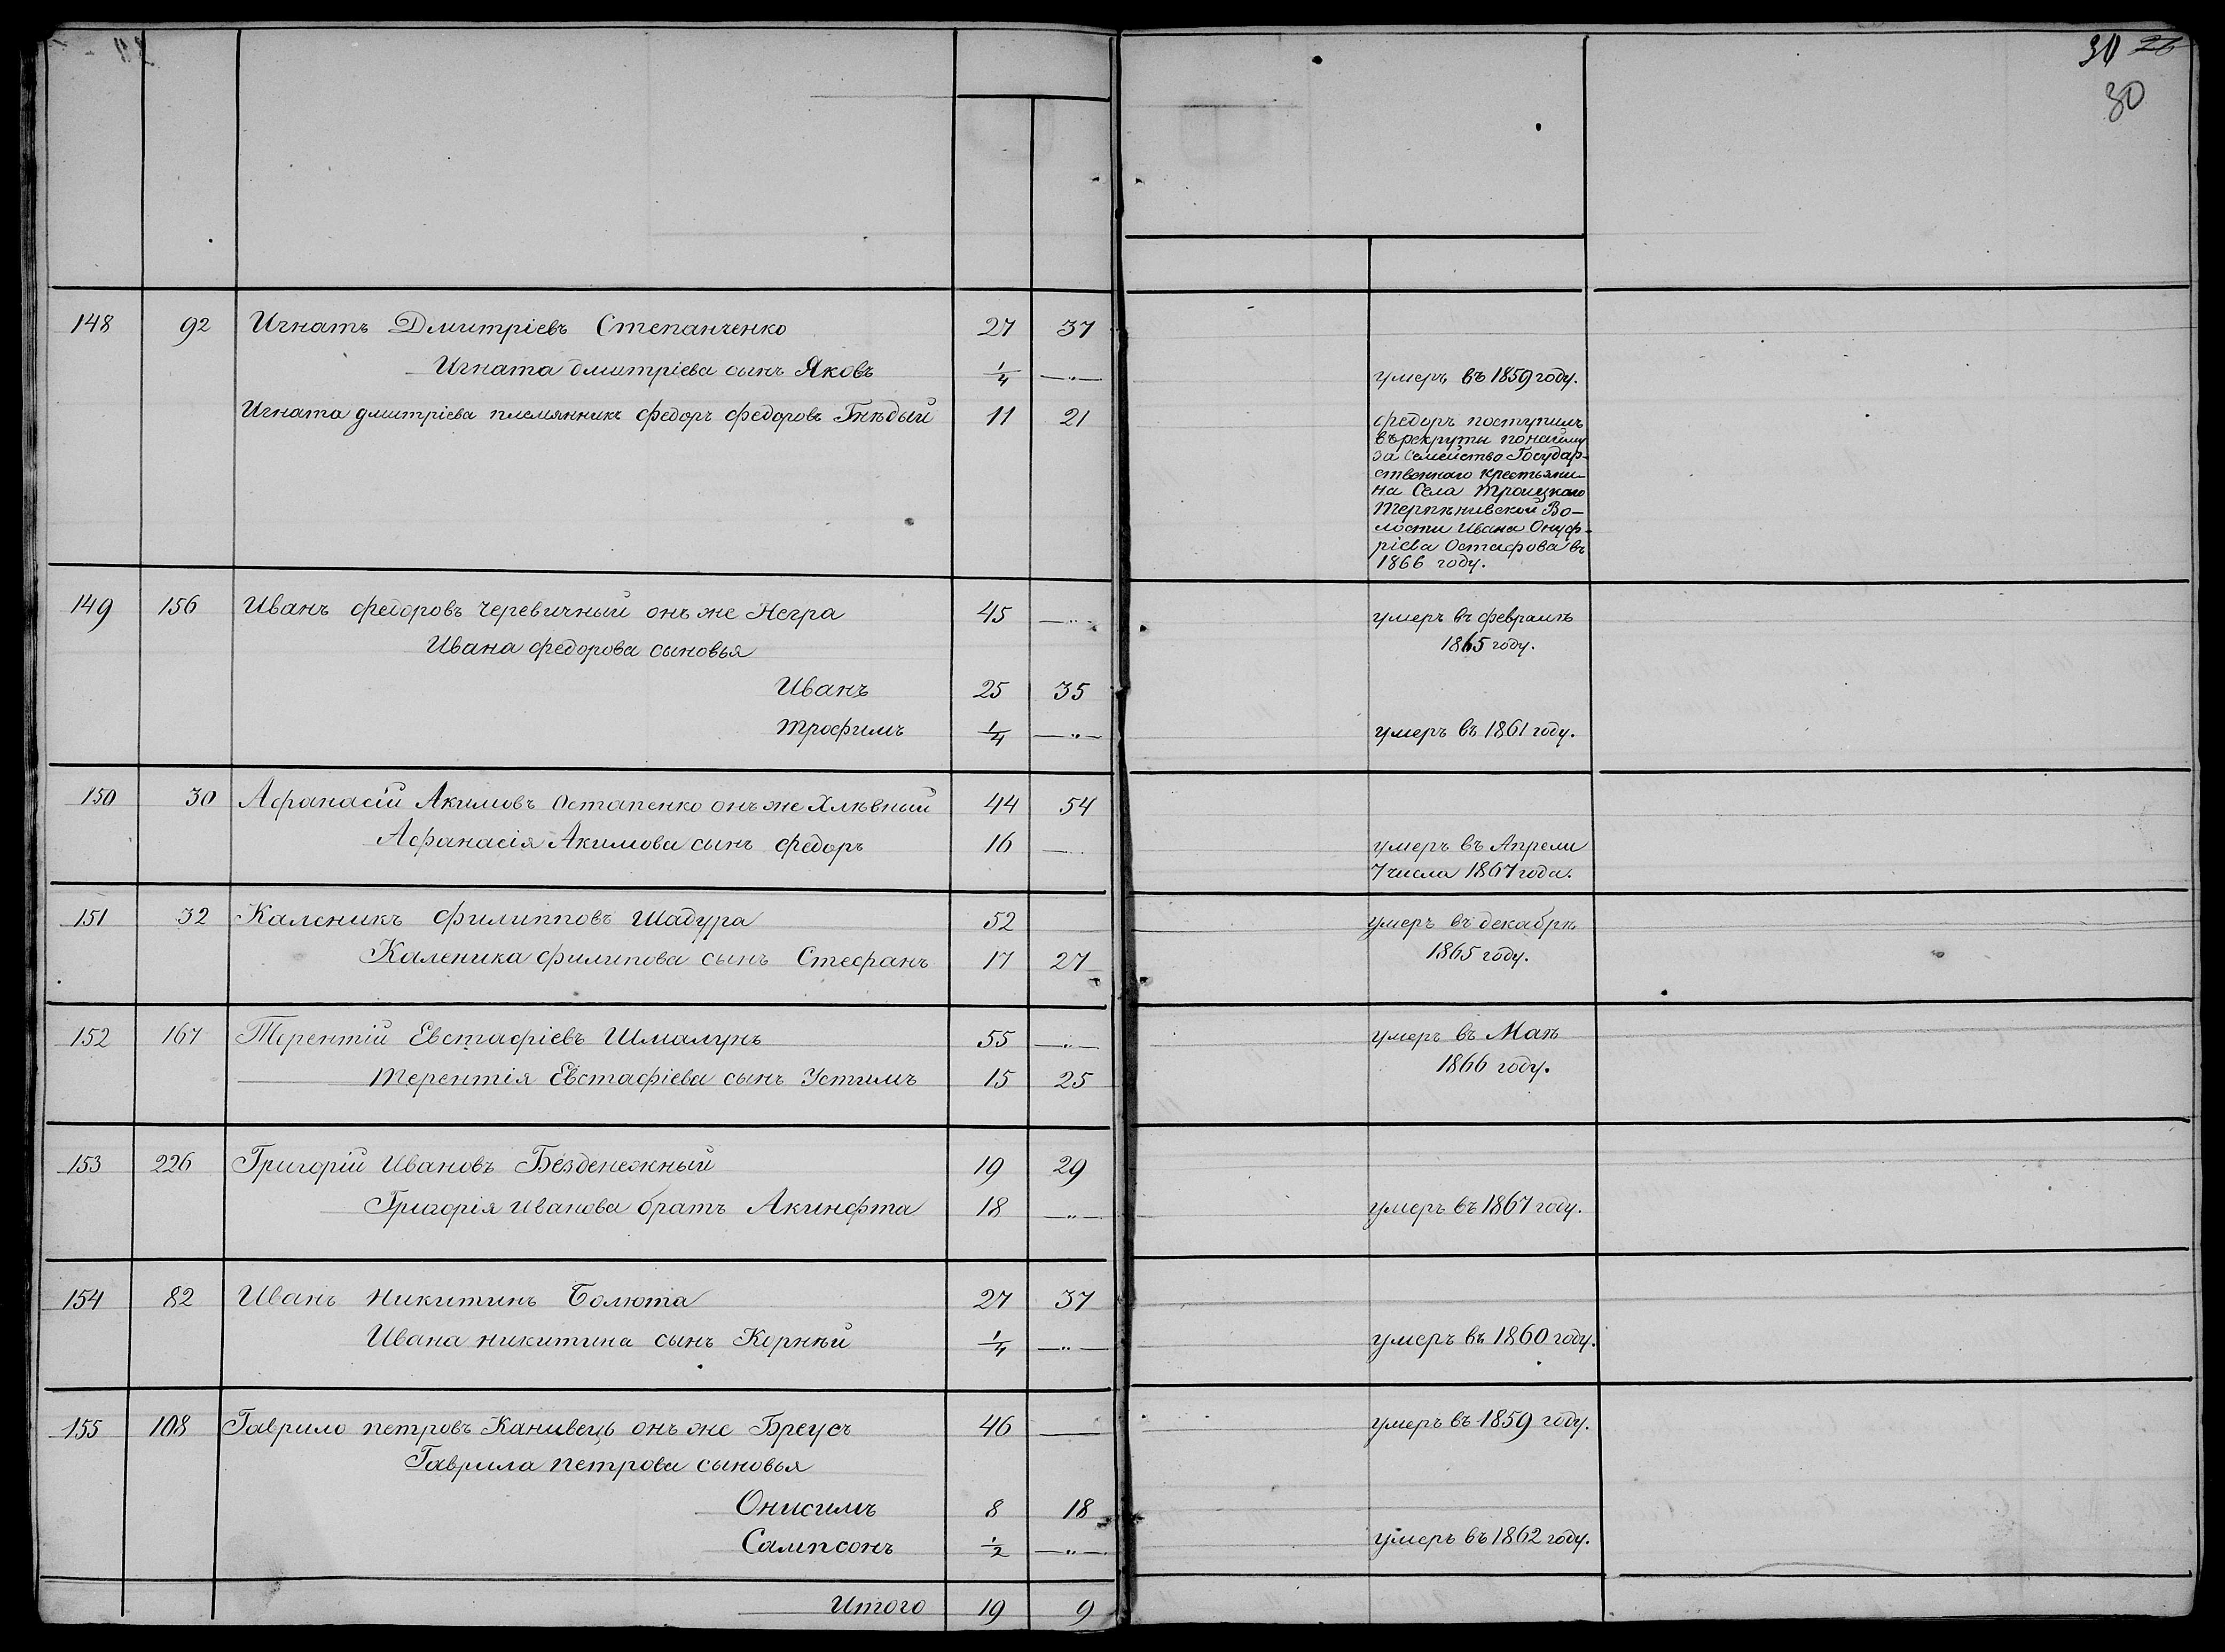 30 26
30
148 92 Игнатъ Дмитріевъ Степанченко 27 37
Игната дмитріева сынъ Яковъ 1/4 —„— умеръ въ 1859 году.
Игната дмитріева племянникъ федоръ федоровъ Гнѣдый 11 21 федоръ поступилъ
въ рекруты по найму
за семейство Государ-
ственнаго крестьяни-
на Села Троицкаго
Терпѣнивской Во-
лости Ивана Онуф-
ріева Остафова въ
1866 году.
149 156 Иванъ федоровъ Черевичный онъ же Негра 45 —„— умеръ въ февралѣ
Ивана федорова сыновья 1865 году.
Иванъ 25 35
Трофимъ 1/4 —„— умеръ въ 1861 году.
150 30 Афанасій Акимовъ Остапенко онъ же Хлѣвный 44 54
Афанасія Акимова сынъ федоръ 16 — умеръ въ Апрели
7 числа 1867 года.
151 32 Каленикъ филипповъ Шадура 52 умеръ въ декабрѣ
Каленика филипова сынъ Стефанъ 17 27 1865 году.
152 167 Терентій Евстафіевъ Шмалунъ 55 —„— умеръ въ Маѣ
Терентія Евстафіева сынъ Устимъ 15 25 1866 году.
153 226 Григорій Ивановъ Безденежный 19 29
Григорія Иванова братъ Акинфта 18 —„— умеръ въ 1867 году.
154 82 Иванъ Никитинъ Болюта 27 37
Ивана никитина сынъ Корнѣй 1/4 —„— умеръ въ 1860 году.
155 108 Гаврило петровъ Канивець онъ же Бреусъ 46 — умеръ въ 1859 году.
Гаврила петрова сыновья
Онисимъ 8 18
Сампсонъ 1/2 —„— умеръ въ 1862 году.
Итого 19 9